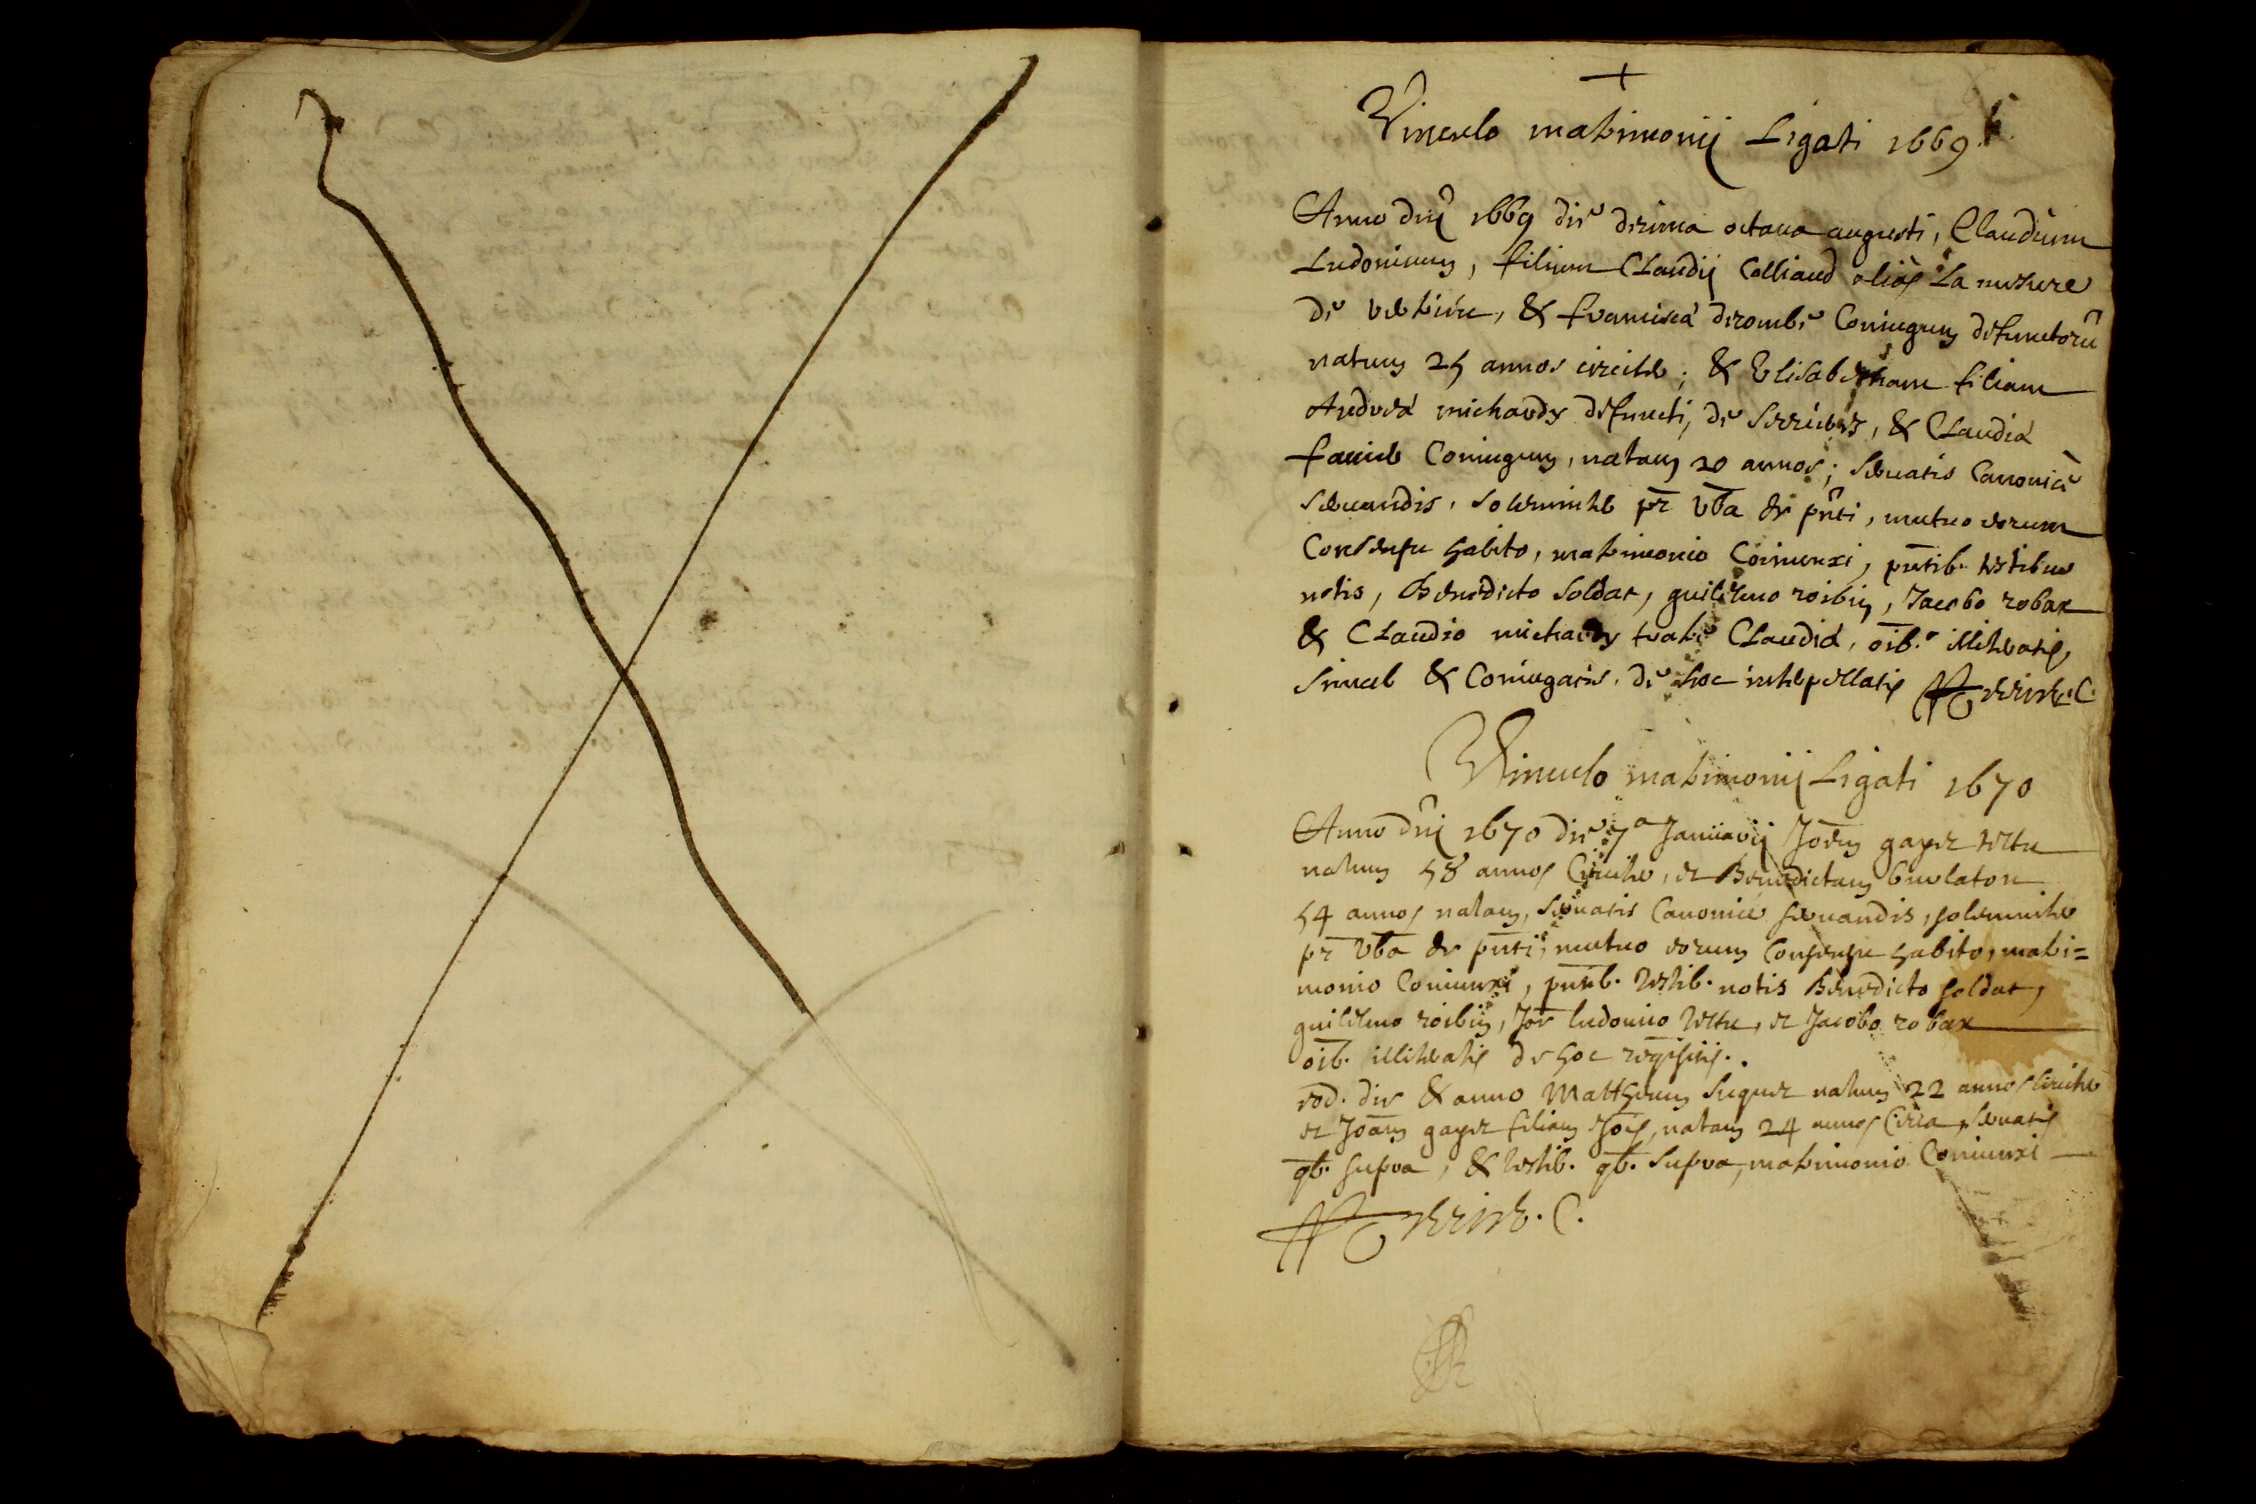 +
Vinculo matrimonij Ligati 1669.
Anno dnj 1669 die decima octaua augusti, Claudium
Ludouicum, filium Claudij Colliaud alias La
de & francisca Coniugum defunctorū
natum 25 annos circiter; & Elisabetham filiam
Andrea michaudz defuncti, de & Claudia
Coniugum, natam 20 annos; seruatis Canonice
seruandis, solemniter pr vba de pnti, mutuo eorum
Consensu habito, matrimonio Coniunxi, pntib. testibus
notis, Benedicto soldat, guilelmo Jacobo robax
& Claudio michaudz fratre Claudia, oib. illiteratis,
simul & Coniugatis, de hoc interpellatis C.
Vinculo matrimonij Ligati 1670
Anno dnj 1670 die 7a Januarij Joem gayet
natum 58 annos Circiter, et Benedictam
54 annos natam, seruatis Canonice seruandis, solemniter
pr vba de pnti, mutuo eorum Consensu habito, matri=
monio Coniunxi, pntib. testib. notis Benedicto soldat,
guilelmo Joe ludouico et Jacobo robax
oib. illiteratis de hoc
eod. die & anno Mattheum natum 22 annos Circiter
et Joam gayet filiam Jois, natam 24 annos Circa, seruatis
qb. supra, & testib. qb. supra, matrimonio Coniunxi
C.